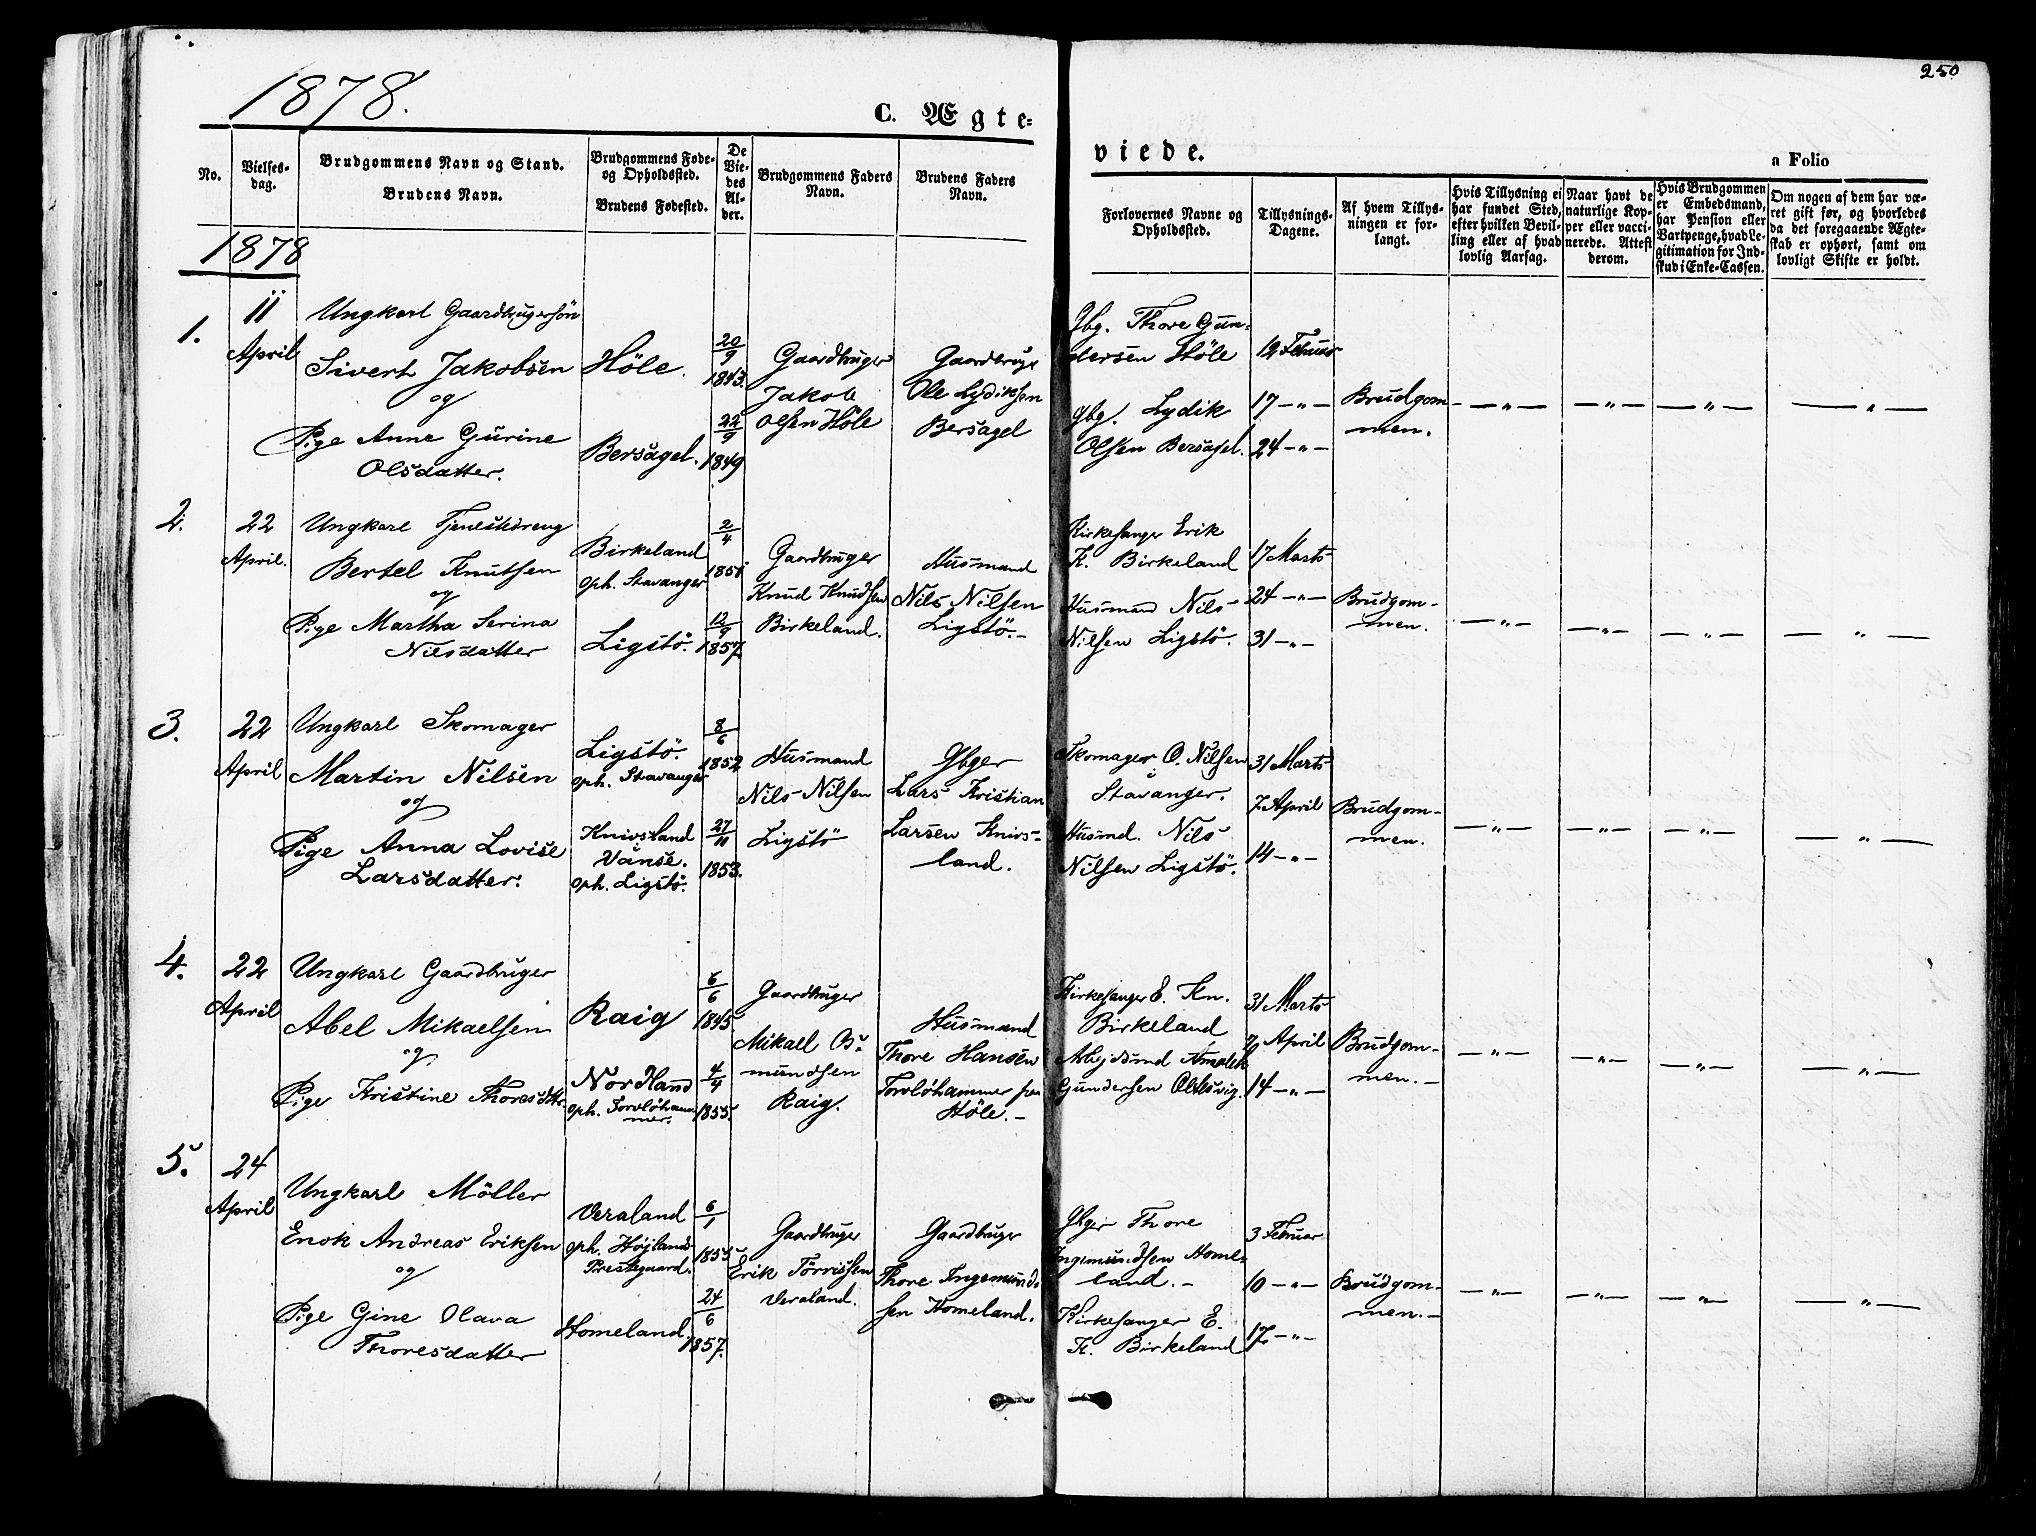 250
1878.
C. Ægte=
viede.
a Folio
No.
Vielses-
dag.
Brudgommens Navn og Stand.
Brudens Navn.
Brudgommens Føde-
og Opholdssted.
Brudens Fødested.
De
Vie-
des
Al-
der.
Brudgommens Faders
Navn.
Brudens Faders
Navn.
Forlovernes Navne og
Opholdssted.
Tillysnings-
Dagene.
Af hvem Tillys-
ningen er for-
langt.
Hvis Tillysning ei
har fundet Sted,
efter hvilken Bevil-
ling eller af hvad
lovlig Aarsag.
Naar havt de
naturlige Kop-
per eller vacci-
nerede. Attest
derom.
Hvis Brudgommen
er Embedsmand,
har Pension eller
Vartpenge, hvad Le-
gitimation for Ind-
skud i Enke-Cassen.
Om nogen af dem har væ-
ret gift før, og hvorledes
da det foregaaende Ægte-
skab er ophørt, samt om
lovligt Skifte er holdt.
1878
1.
11
April
Ungkarl Gaardbrugersön
Sivert Jakobsen
og
Pige Anne Gurine
Olsdatter.
Höle.
Bersagel.
20/9
1843.
22/9
1849
Gaardbruger
Jakob
Olsen Höle
Gaardbruge
Ole Lydiksen
Bersagel
Gbg. Thore Gun-
dersen Höle
Gbg. Lydik
Olsen Bersagel.
12 Februar
17 — „ —
24 — „ —
Brudgom
men.
— „ —
— „ —
— „ —
— „ —
2.
22
April.
Ungkarl Tjenestedreng
Bertel Knutsen
og
Pige Martha Serina
Nilsdatter
Birkeland
oph. Stavanger
Ligstö.
2/4
12/9
1857.
Gaardbruger
Knud Knudsen
Birkeland.
Husmand
Nils Nilsen
Ligstö. —
Kirkesanger Erik
K. Birkeland
Husmand Nils
Nilsen Ligstö.
17 Marts
24 — „ —
31 — „ —
Brudgom-
men.
— „ —
— „ —
— „ —
— „ —
3.
22
April
Ungkarl Skomager
Martin Nilsen
og
Pige Anna Lovise
Larsdatter.
Ligstö.
oph. Stavanger
Knivsland
Vanse.
oph. Ligstö.
8/6
1852
27/11
1853.
Husmand
Nils Nilsen
Ligstö
Gbger
Lars Kristian
Larsen Knivs-
land.
Skomager O. Nilsen
Stavanger.
Husmd. Nils
Nilsen Ligstö.
31 Marts
7 April
14 — „ —
Brudgom-
men.
— „ —
— „ —
— „ —
— „ —
4.
22
April
Ungkarl Gaardbruger
Abel Mikaelsen
og
Pige Kristine Thoresdtr.
Raig
Nordland
oph. Forvlöham
mer.
6/6
1845
4/4
1855.
Gaardbruger
Mikael Os-
mundsen
Raig.
Husmand
Thore Hansen
Forvlöhammer
Höle. —
Kirkesanger E. Kn.
Birkeland
Gundersen
31 Marts
7 April
14 — „ —
Brudgom-
men. —
— „ —
— „ —
— „ —
— „ —
5.
24
April
Ungkarl Möller
Enok Andreas Eriksen
og
Pige Gine Olava
Thoresdatter
Veraland
oph. Höjlands
Prestegaard.
Homeland
6/1
1855
24/6
1857.
Gaardbruger
Erik Törrissen
Veraland.
Gaardbruger
Thore Ingemund-
sen Homeland.
Gbger Thore
Ingemundsen Home-
land. —
Kirkesanger E.
K. Birkeland
3 Februar
10 — „ —
17 — „ —
Brudgom-
men. —
— „ —
— „ —
— „ —
— „ —